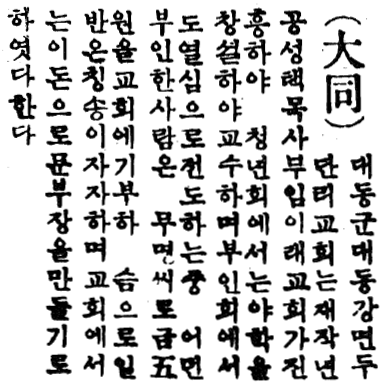 (大同)
대동군대동강면두
단리교회는재작년
공성택목사부임이래교회가진
흥하야 청년회에서는야학을
창설하야교수하며부인회에서
도열심으로전도하는중 어떤
부인한사람은 무명씨로금五
원을교회에기부하 슴으로일
반은칭송이자자하며교회에서
는이돈으로문부장을만들기로
하엿다한다